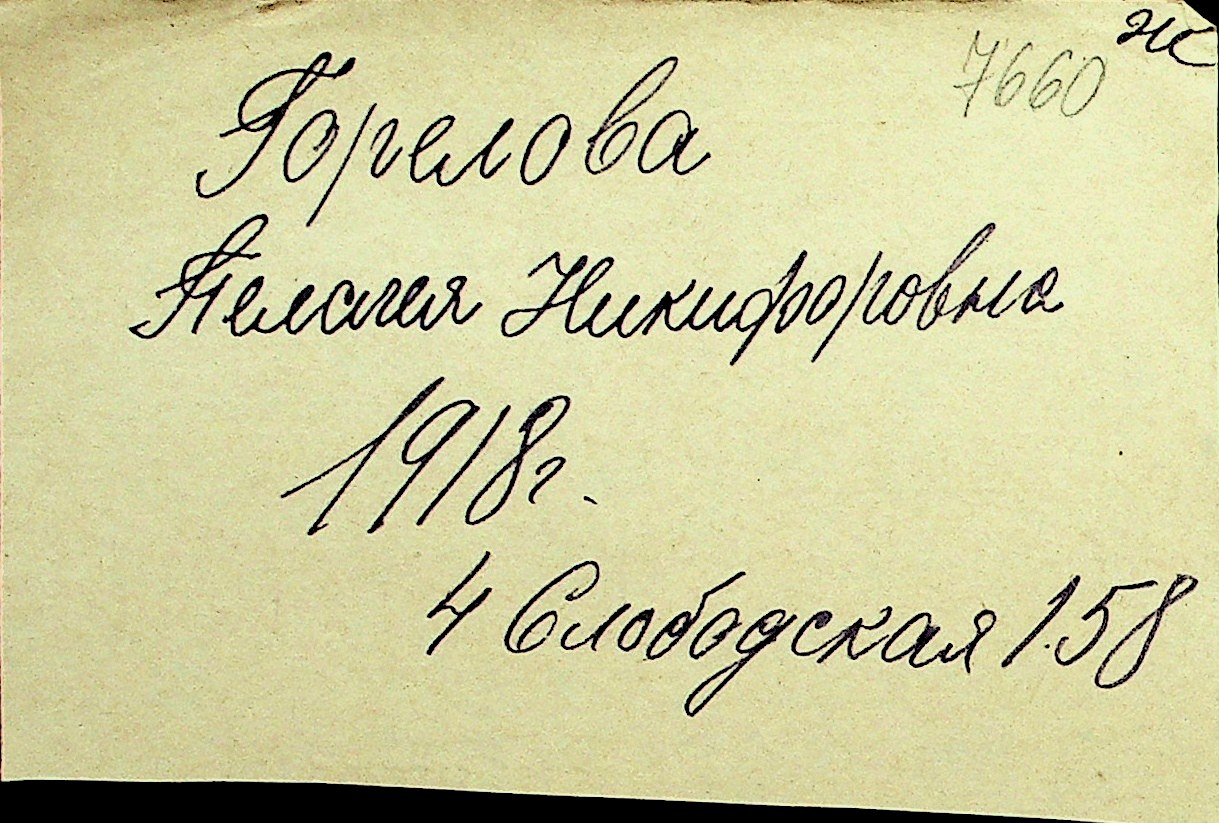 ж
7660
Горелова
Пелагея Никифоровна
1918г.
4 Слободская 158